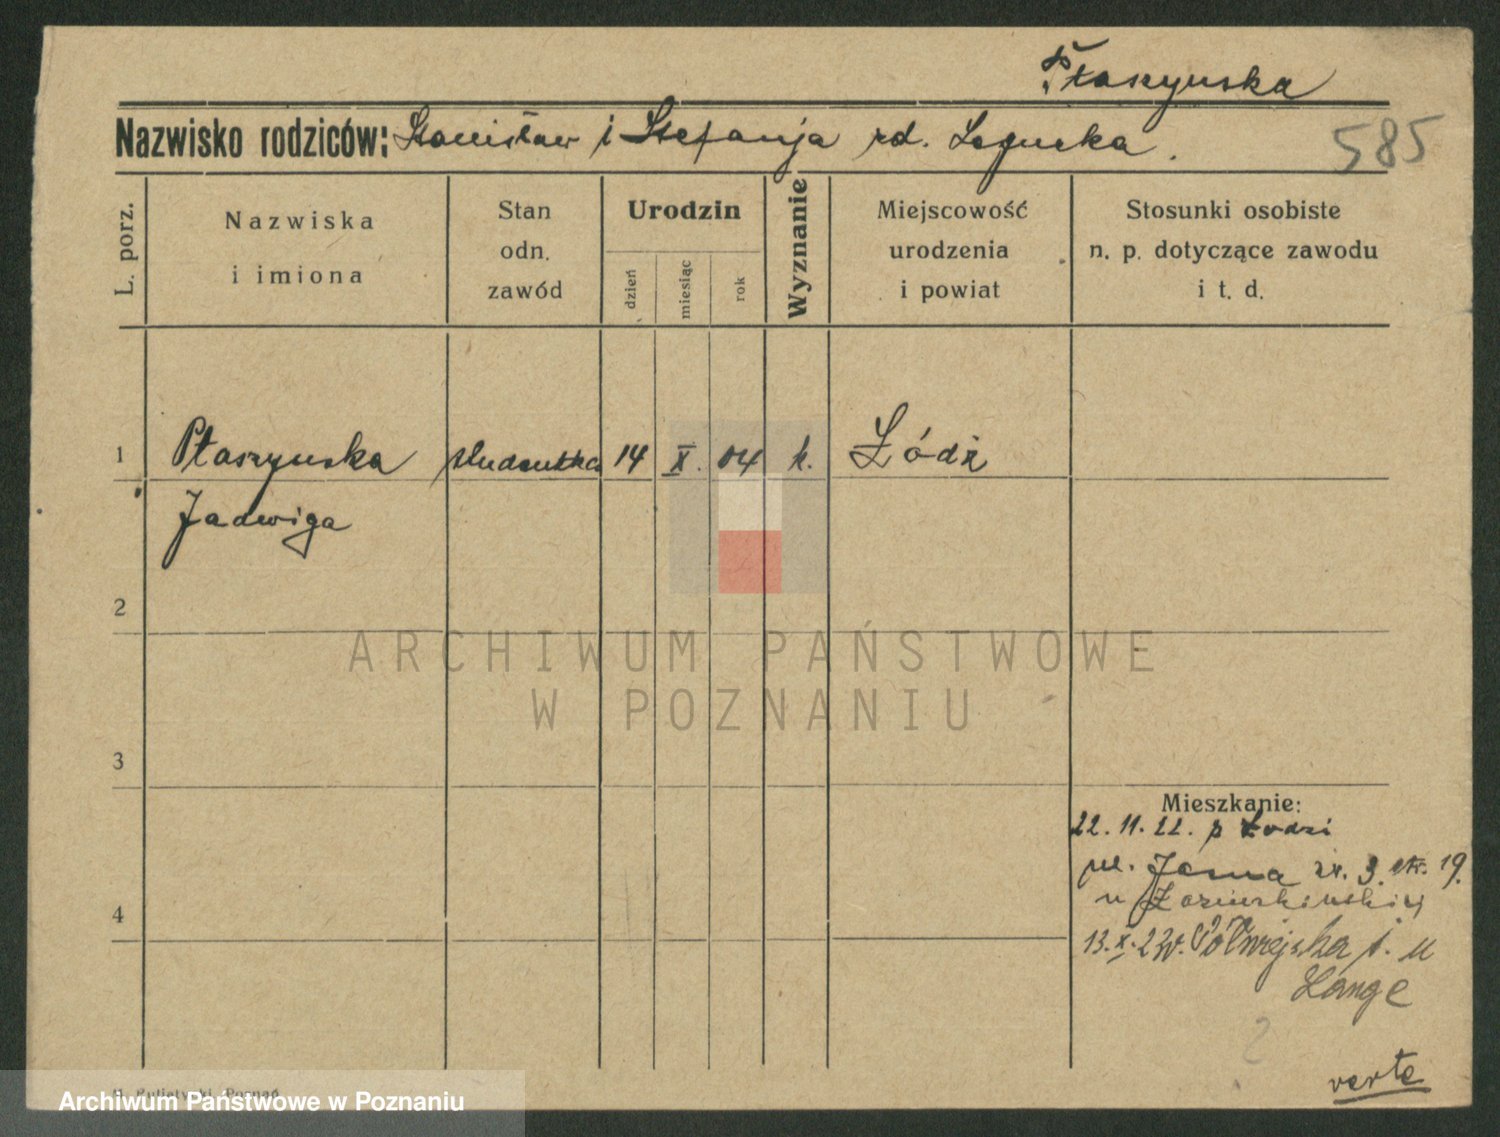 Ptaszyńska
Nazwisko rodziców: Stanisław i Stefanja rd.
585
L. porz.
Nazwiska
i imiona
Stan
odn.
zawód
Urodzin
dzień
miesiąc
rok
Wyznanie
Miejscowość
urodzenia
i powiat
Stosunki osobiste
n. p. dotyczące zawodu
i t. d.
1 Ptaszyńska studentka 14 X. 04 k. Łódź
Jadwiga
2
ARCHIWUM PAŃSTWOWE
W POZNANIU
3
Mieszkanie:
22. 11. 22. z Łodzi
ul. Jasna nr. 9. 19.
4
u
13. X. 23 Półwiejska 1. u
Lange
verte
Poznań
Archiwum Państwowe w Poznaniu